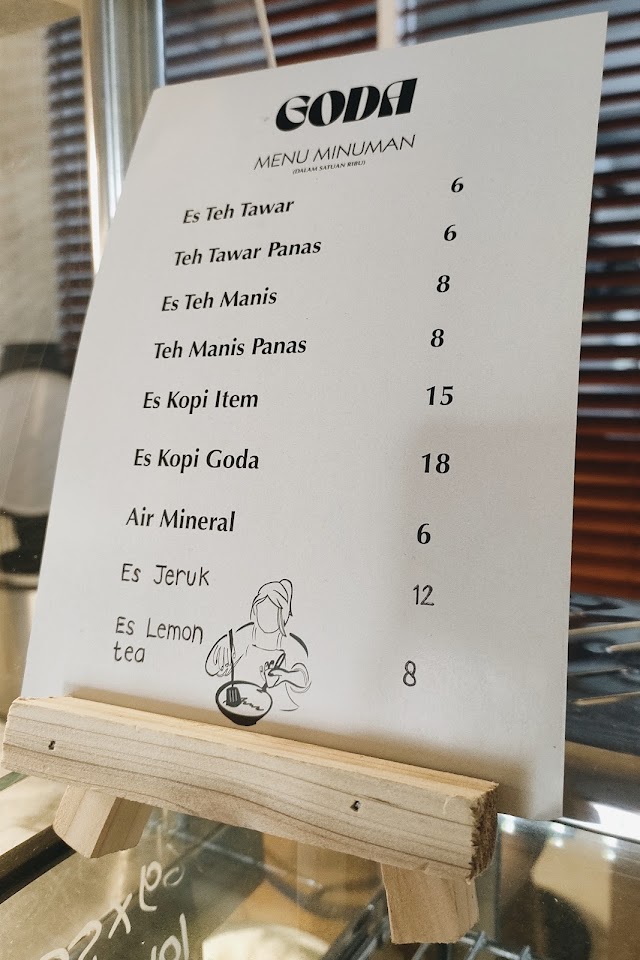 GODA
MENU MINUMAN
(DALAM SATUAN RIBU)
Es Teh Tawar 6
Teh Tawar Panas 6
Es Teh Manis 8
Teh Manis Panas 8
Es Kopi Item 15
Es Kopi Goda 18
Air Mineral 6
Es Jeruk 12
Es Lemon
tea 8